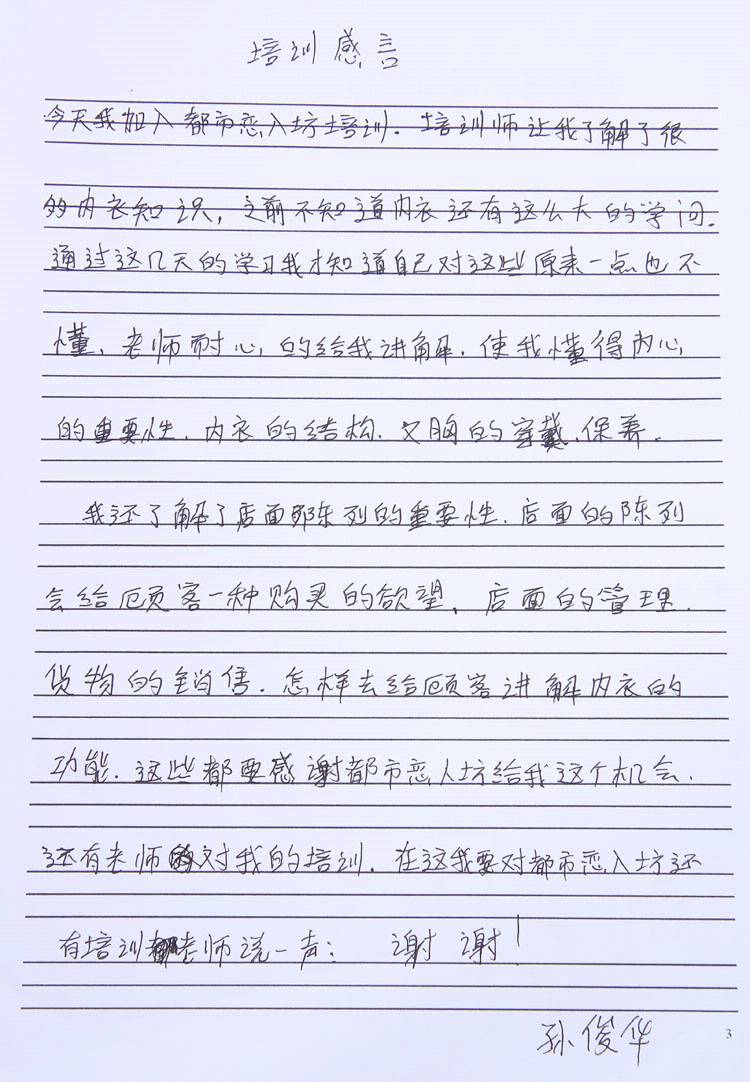 培训感言
今天我加入都市恋人坊培训.培训师让我了解了很
多内衣知识,之前不知道内衣还有这么大的学问.
通过这几天的学习我才知道自己对这些原来一点也不
懂、老师耐心的给我讲解.使我懂得内心
的重要性.内衣的结构.文胸的穿戴.保养.
我还了解了店面陈列的重要性.店面的陈列
会给顾客一种购买的欲望、店面的管理.
货物的销售.怎样去给顾客讲解内衣的
功能.这些都要感谢都市恋人坊给我这个机会.
还有老师对我的培训.在这我要对都市恋人坊还
有培训老师说一声:谢谢!
孙俊华
3